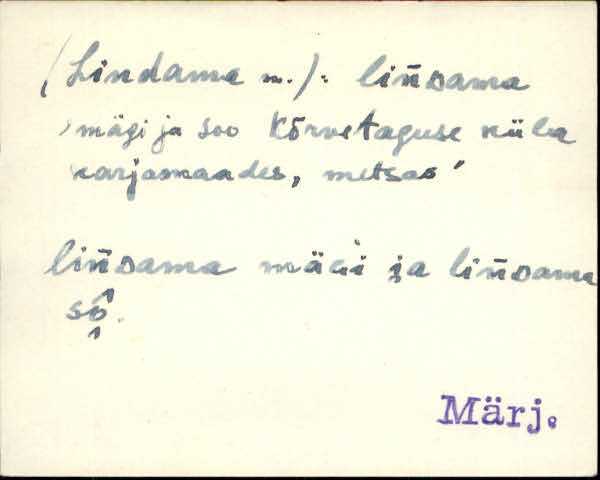 (Lindama m.): lińdama
'mägi ja soo Kõrvetaguse küla
karjamaades, metsas'
lińdama mäGi ja lińdama
sô̭.
Märj.